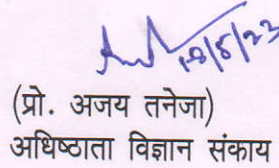 18/5/23
(प्रो. अजय तनेजा)
अधिष्ठाता विज्ञान संकाय